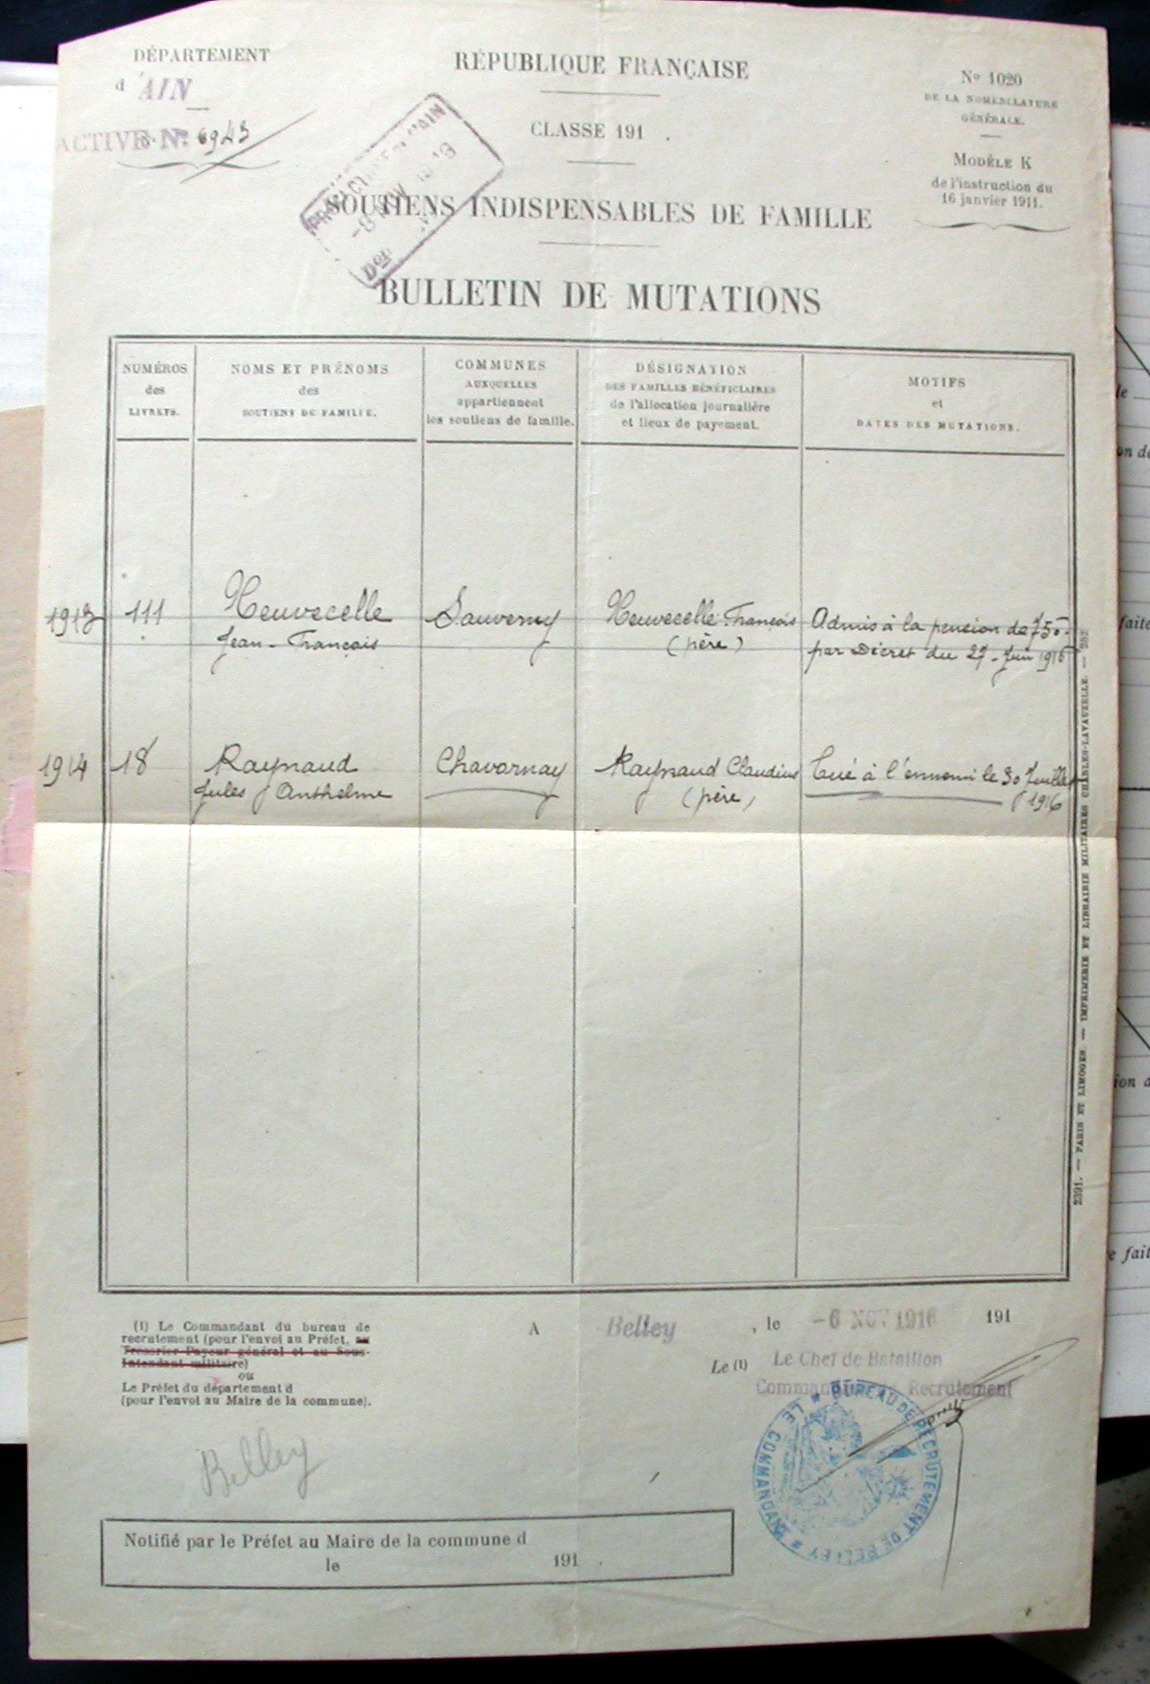 DÉPARTEMENT
d AIN
ACTIVE Nº 6943
RÉPUBLIQUE FRANÇAISE
CLASSE 191 .
Nº 1020
DE LA NOMENCLATURE
GÉNÉRALE.
MODÈLE K
de l'instruction du
16 janvier 1911.
SOUTIENS INDISPENSABLES DE FAMILLE
BULLETIN DE MUTATIONS
NUMÉROS
des
LIVRETS.
NOMS ET PRÉNOMS
des
SOUTIENS DE FAMILLE.
COMMUNES
AUXQUELLES
appartiennent
les soutiens de famille.
DÉSIGNATION
DES FAMILLES BÉNÉFICIAIRES
de l'allocation journalière
et lieux de payement.
MOTIFS
et
DATES DES MUTATIONS.
1913 111 Neuvecelle Sauverny Neuvecelle François Admis à la pension de 750
Jean-François (père) par Décret du 27 Juin 1916
1914 18 Raynaud Chavornay Raynaud Claudius Tué à l'ennemi le 30 Juillet
Jules Anthelme (père) 1916
2391. — PARIS ET LIMOGES. — IMPRIMERIE ET LIBRAIRIE MILITAIRES CHARLES-LAVAUZELLE. — 252
(1) Le Commandant du bureau de
recrutement (pour l'envoi au Préfet, au
Trésorier Payeur général et au Sous-
Intendant militaire)
ou
Le Préfet du département d
(pour l'envoi au Maire de la commune).
A Belley, le -6 NOV 1916 191
Le (1) Le Chef de Bataillon
Commandant de Recrutement
LE COMMANDANT * BUREAU DE RECRUTEMENT DE BELLEY *
Belley
Notifié par le Préfet au Maire de la commune d
le 191 .